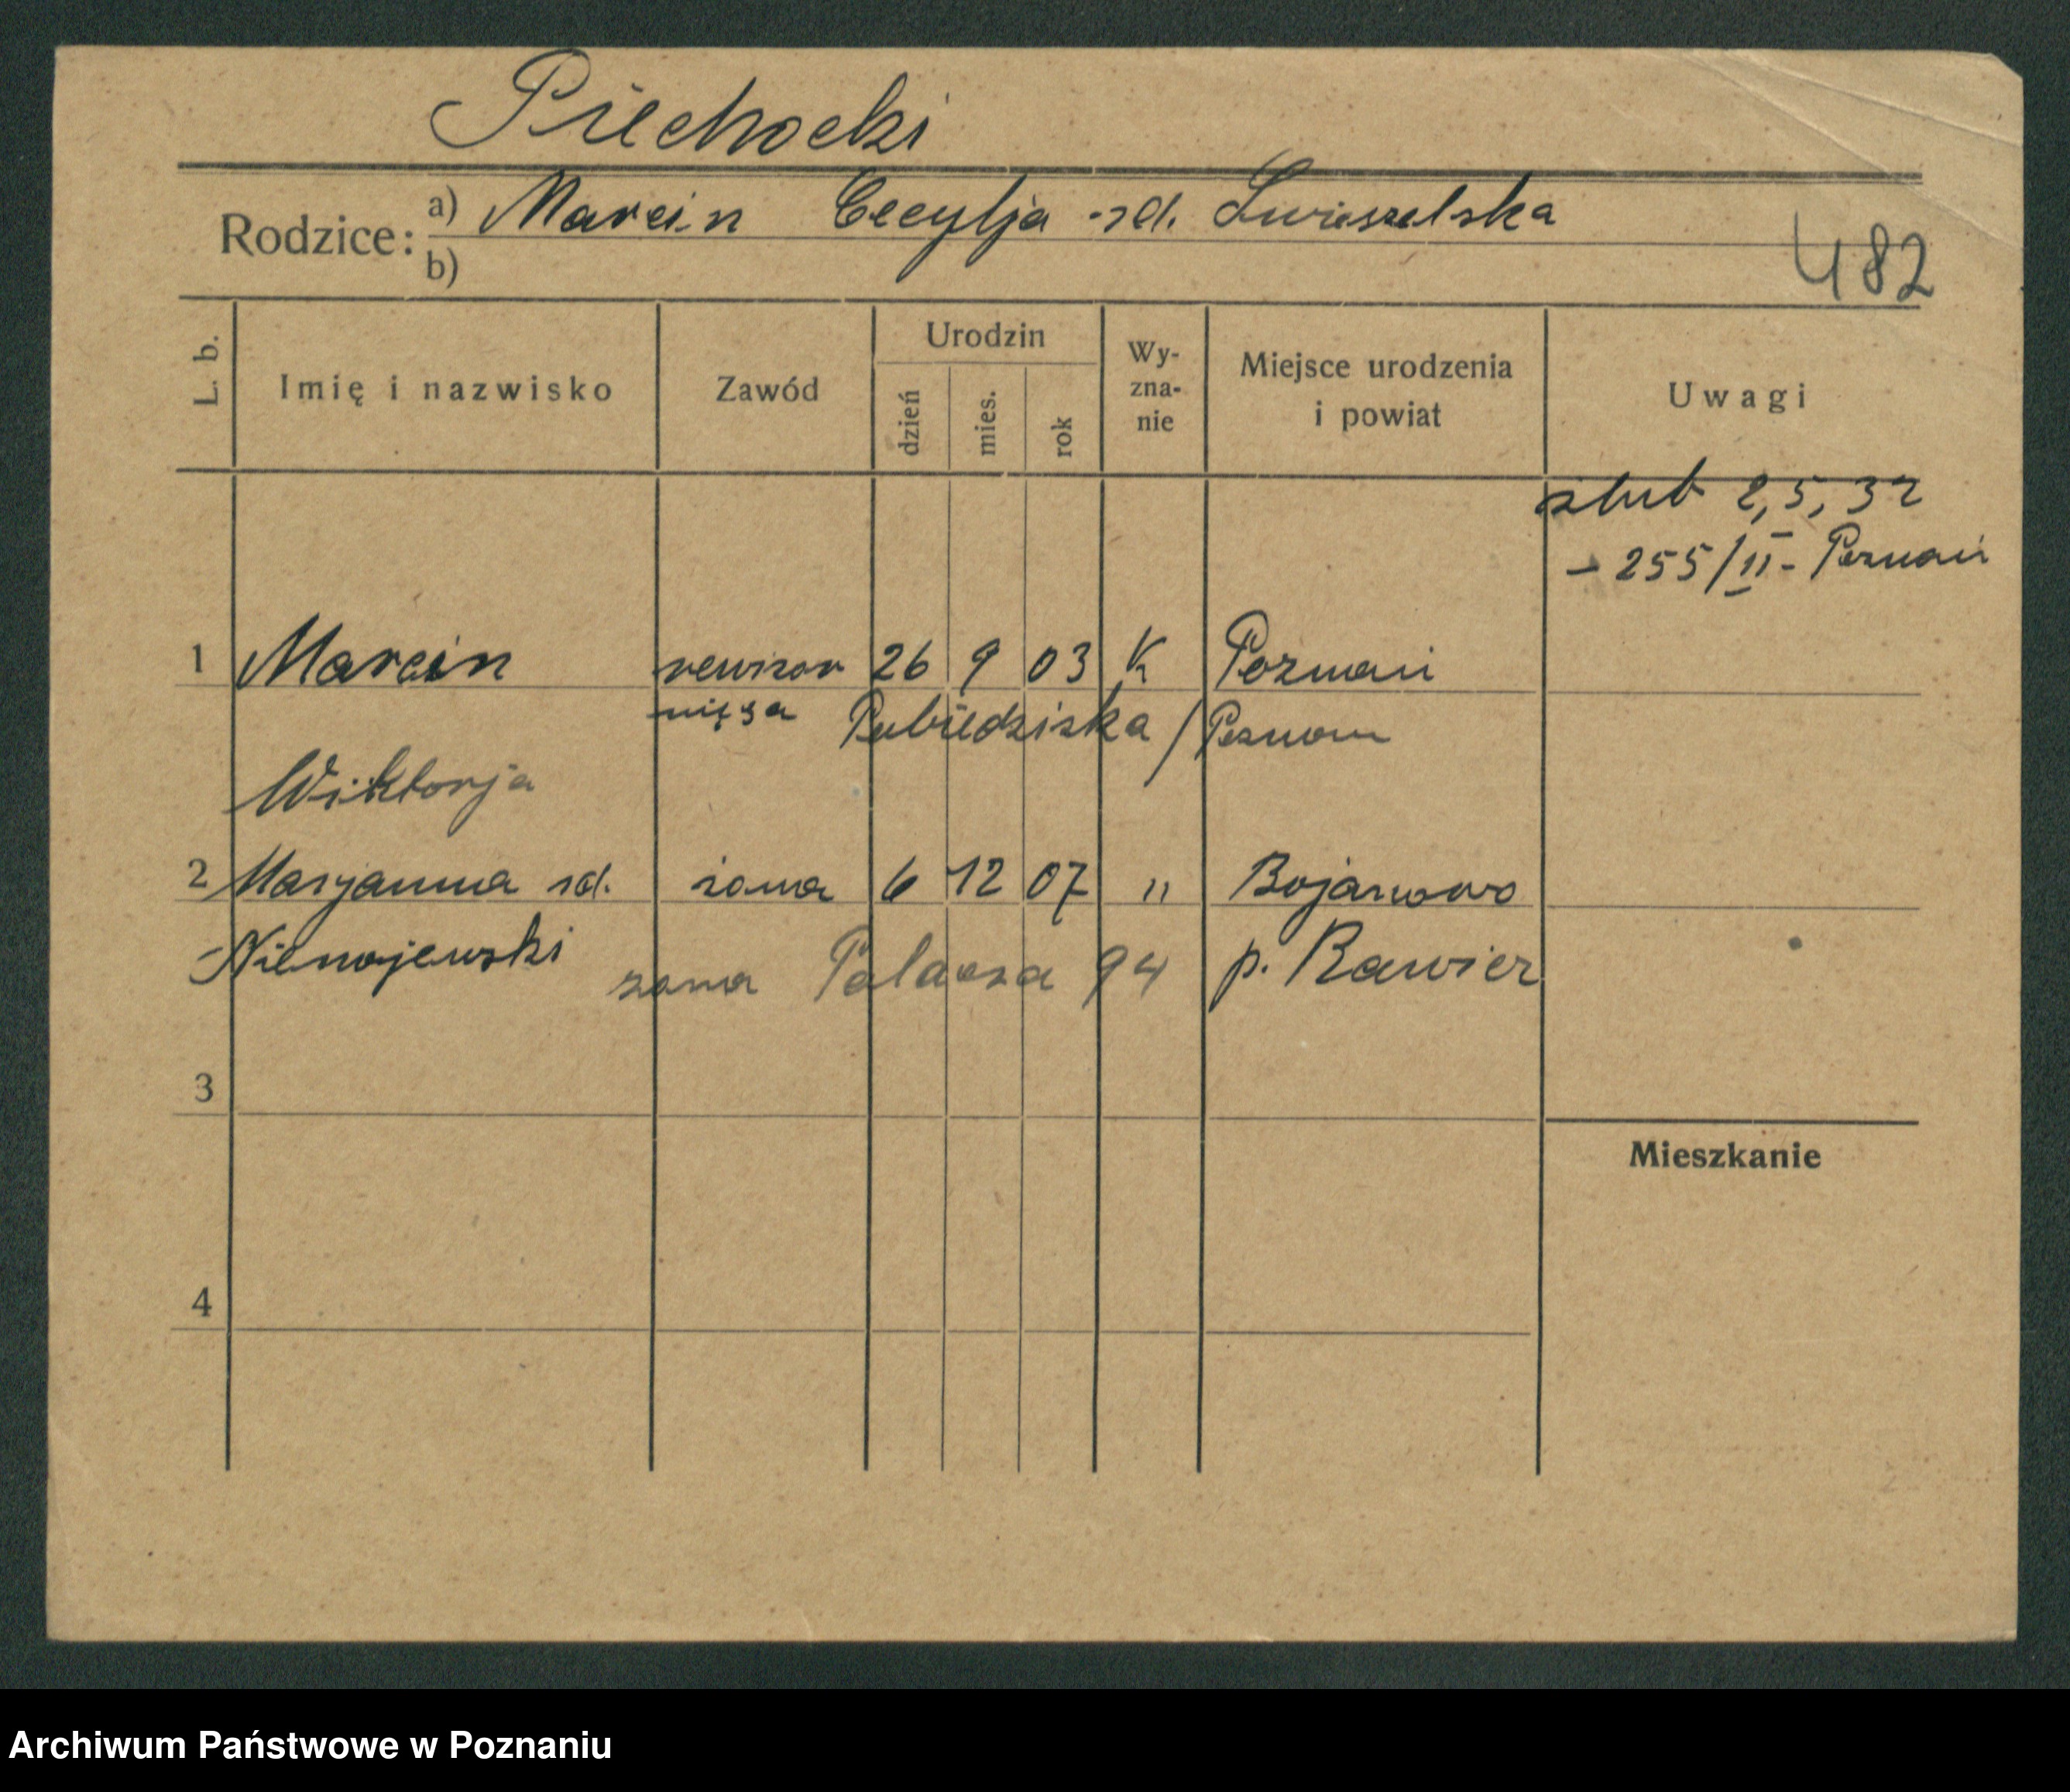 Piechocki
Rodzice: a) Marcin Cecylja zd.
b)
482
L. b.
Imię i nazwisko
Zawód
Urodzin
dzień
mies.
rok
Wy-
zna-
nie
Miejsce urodzenia
i powiat
Uwagi
ślub 2,5,32
- 255/II - Poznań
1 Marcin rewizor 26 9 03 K Poznań
mięsa Pobiedziska / Poznań
Wiktorja
2 Maryanna zd. żona 6 12 07 " Bojanowo
Niemojewski żona Palacza 94 p. Rawicz
3
Mieszkanie
4
Archiwum Państwowe w Poznaniu